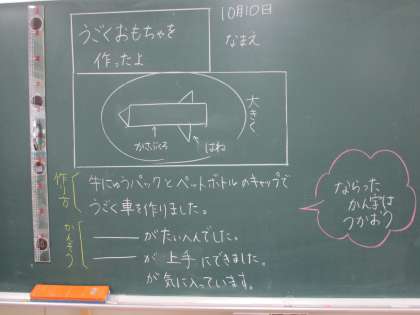 うごくおもちゃを
作ったよ
10月10日
なまえ
大きく
かさぶくろ
はね
作り方
牛にゅうパックとペットボトルのキャップで
うごく車を作りました。
かんそう
がたいへんでした。
が上手にできました。
が気に入っています。
ならった
かん字は
つかおう